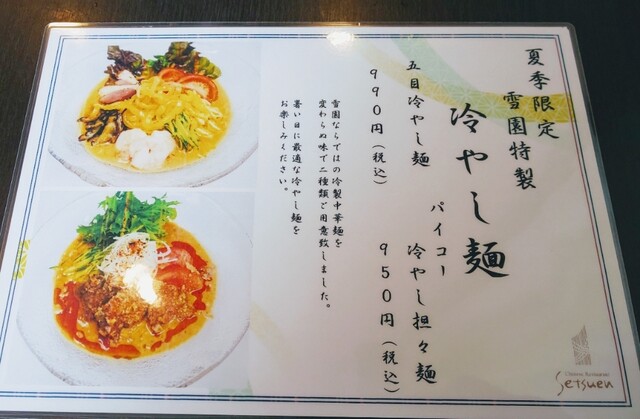 夏季限定
雪園特製
冷やし麺
五目冷やし麺
990円(税込)
パイコー
冷やし担々麺
950円(税込)
雪園ならではの冷製中華麺を
変わらぬ味で二種類ご用意致しました。
暑い日に最適な冷やし麺を
お楽しみください。
Chinese Restaurant
Setsuen